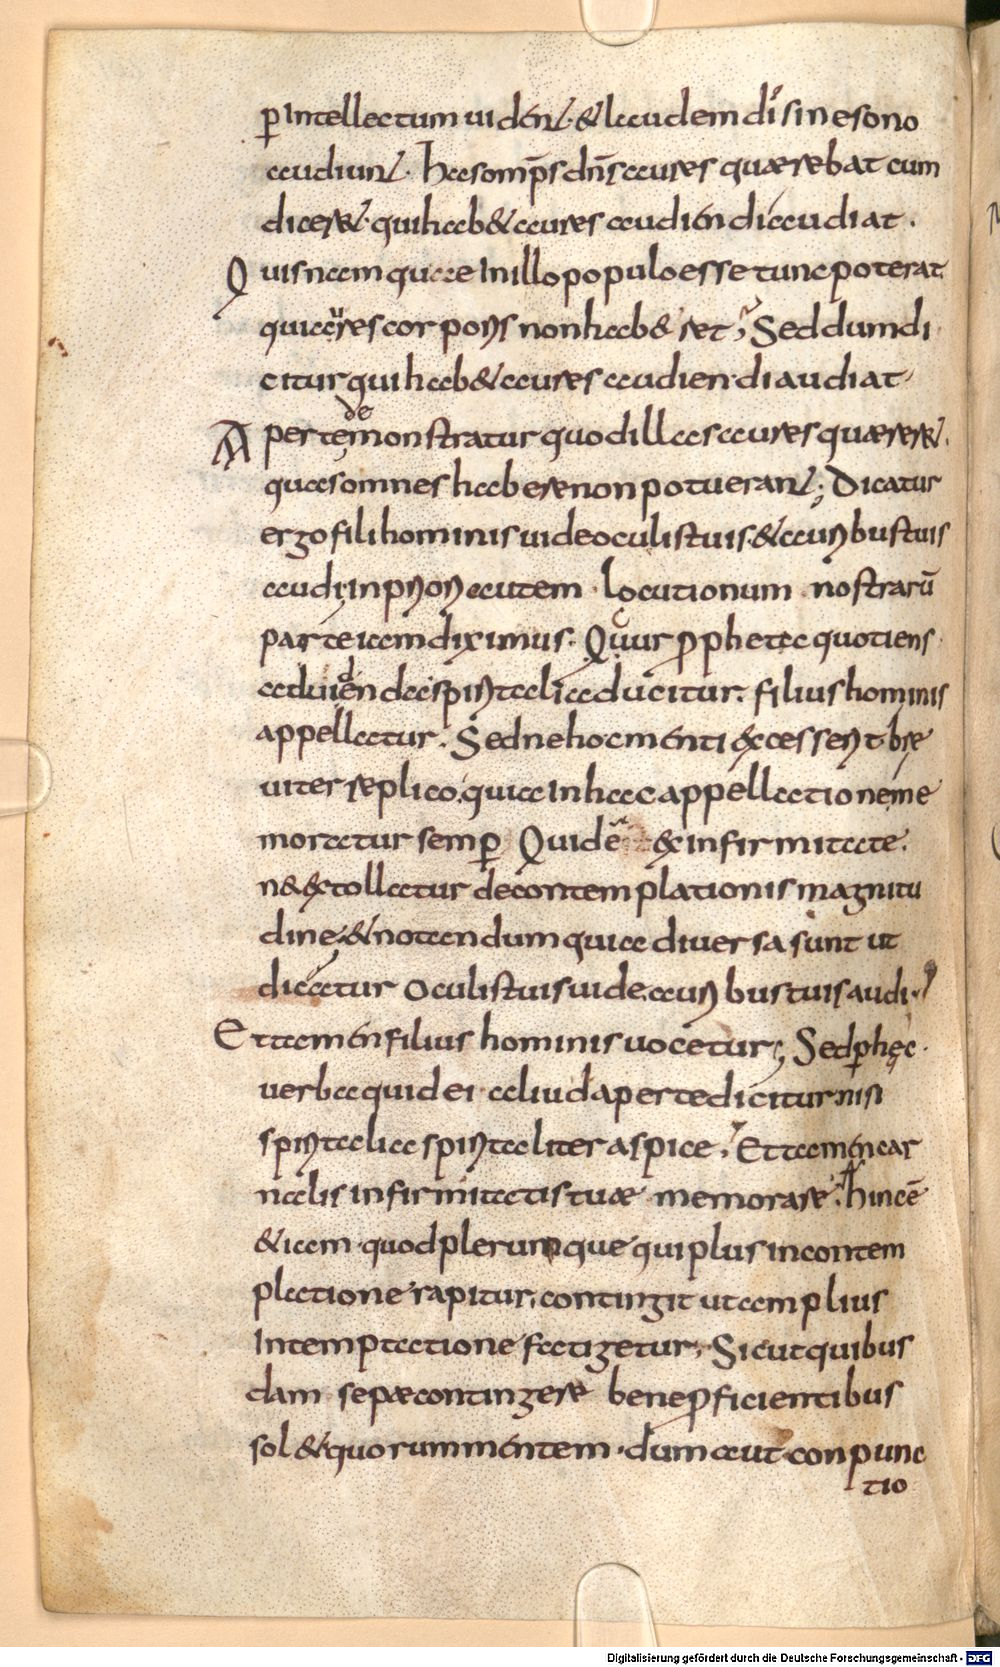 p̄ intellectum uident. & laudem dī sine sono
audiunt. has omp̄s dn̄s aures quærebat cum
diceret. qui hab& aures audiendi audiat.
Quis namque in illo populo esse tunc poterat
qui aures corporis non hab&ret; Sed dum di
citur qui hab& aures audiendi audiat
Aperte demonstratur quod illas aures quæreret.
quas omnes habere non potuerant; Dicatur
ergo fili hominis uide oculis tuis & auribus tuis
audi; in priori autem locutionum nostrarū
parte iam diximus. Quur ppheta quotiens
ad uidenda spiritalia ducitur. filius hominis
appellatur. Sed ne hoc menti excesserit bre
uiter replico. quia in hac appellatione me
moratur semp̄ Quid ē ex infirmitate.
n& extollatur de contemplationis magnitu
dine; & notandum quia diuersa sunt ut
dicatur oculis tuis uide. auribus tuis audi.
Et tamen filius hominis uocetur; Sed p̄ hęc
uerba quid ei aliud aperte dicitur nisi
spiritalia spiritaliter aspice; Et tamen car
nalis infirmitatis tuæ memorare; hinc ē
&iam quod plerumque qui plus in contem
platione rapitur, contingit ut amplius
In temptatione fatigetur; Sicut quibus
dam sepæ contingere bene proficientibus
sol& quorum mentem dum aut conpunc
tio
Digitalisierung gefördert durch die Deutsche Forschungsgemeinschaft - DFG